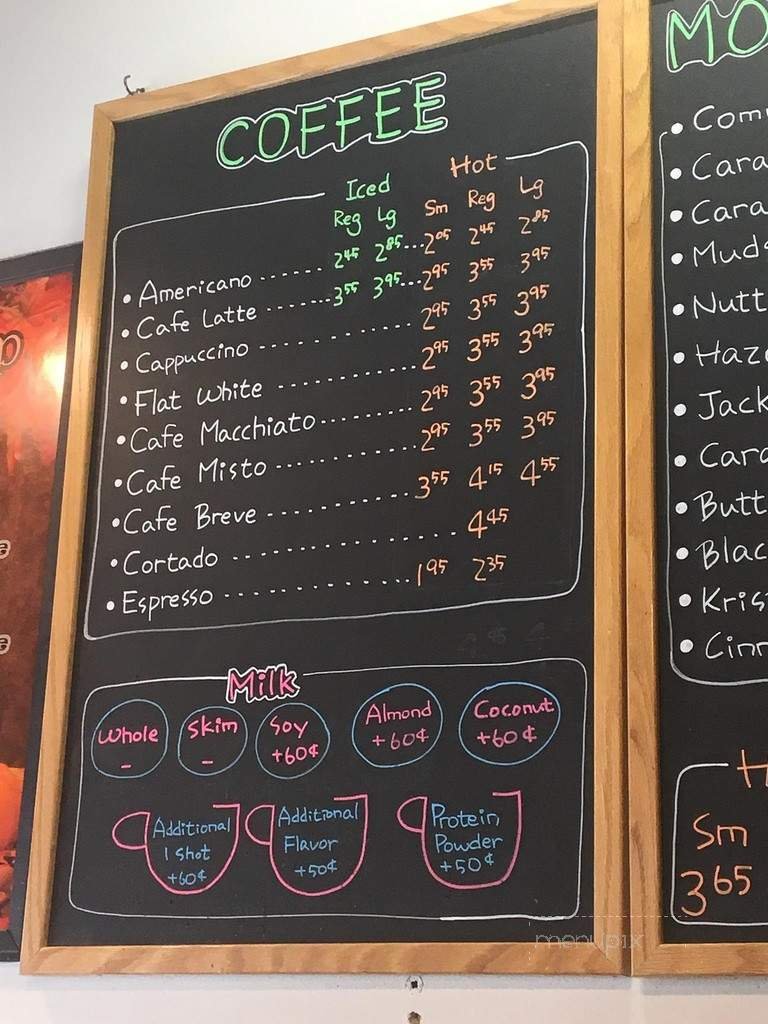 COFFEE
Iced Hot
Reg Lg Sm Reg Lg
• Americano ...... 2 45 2 85 ... 2 05 2 45 2 85
• Cafe Latte ...... 3 55 3 95 ... 2 95 3 55 3 95
• Cappuccino .......... 2 95 3 55 3 95
• Flat White .......... 2 95 3 55 3 95
• Cafe Macchiato .......... 2 95 3 55 3 95
• Cafe Misto .......... 2 95 3 55 3 95
• Cafe Breve .......... 3 55 4 15 4 55
• Cortado .......... 4 45
• Espresso .......... 1 95 2 35
Milk
Whole
-
Skim
-
Soy
+60¢
Almond
+60¢
Coconut
+60¢
Additional
1 Shot
+60¢
Additional
Flavor
+50¢
Protein
Powder
+50¢
MO
• Com
• Cara
• Cara
• Muds
• Nutt
• Haze
• Jack
• Cara
• Butt
• Blac
• Kris
• Cinn
H
Sm
3 65
menupix